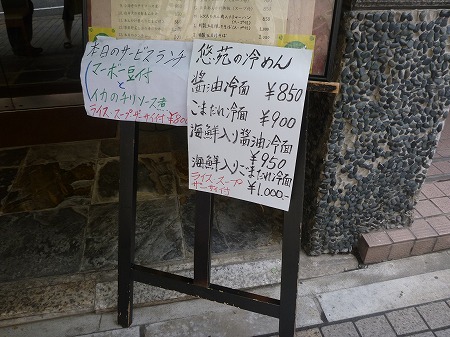 本日のサービスランチ
マーボー豆付
と
イカのチリソース煮
ライス・スープ・ザーサイ付 ¥800
悠苑の冷めん
醤油冷面 ¥850
ごまだれ冷面 ¥900
海鮮入り醤油冷面
¥950
海鮮入りごまだれ冷面
¥1,000-
ライス・スープ
ザーサイ付